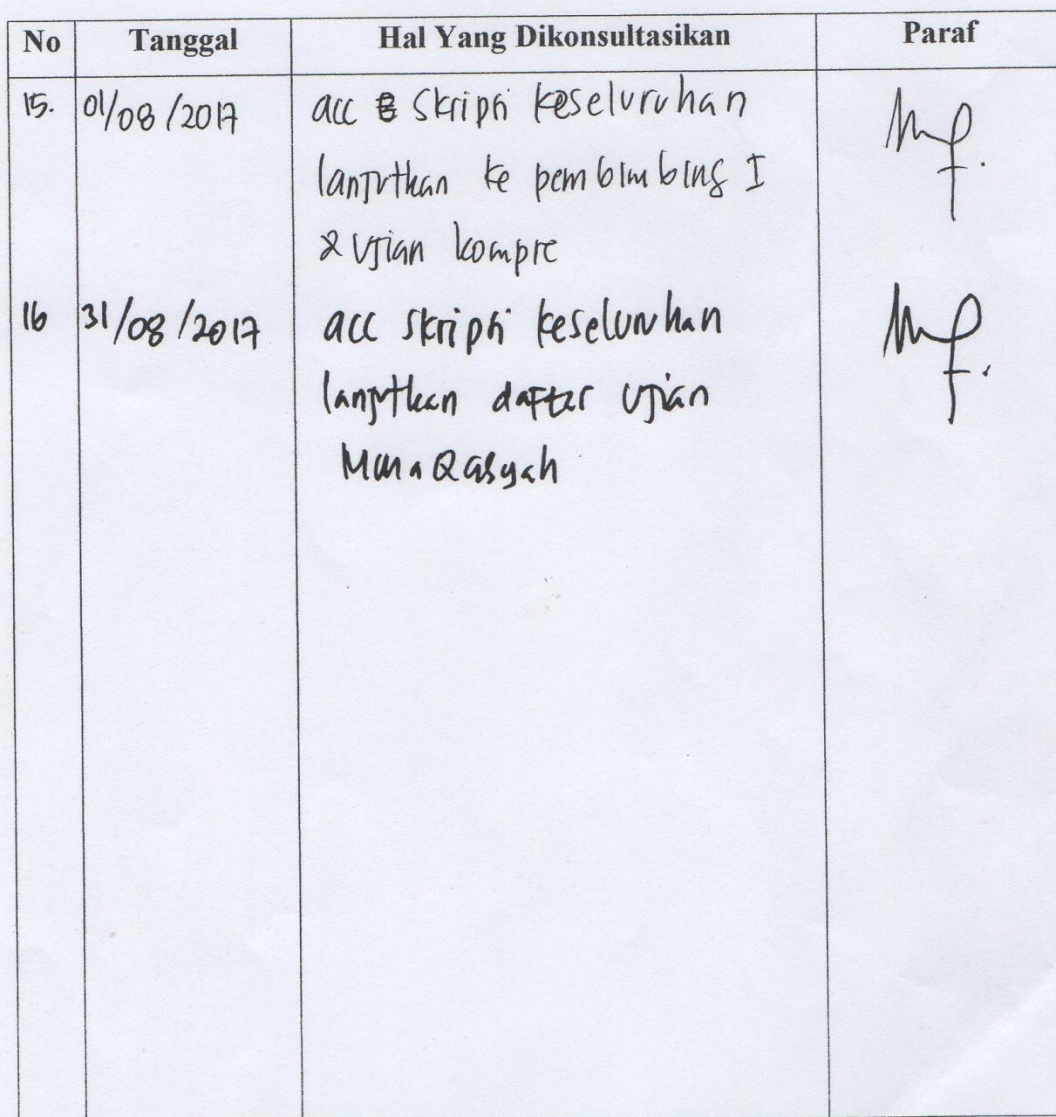 No Tanggal Hal Yang Dikonsultasikan Paraf
15. 01/08/2017 acc skripsi keseluruhan
lanjutkan ke pembimbing I
& Ujian kompre
16 31/08/2017 acc skripsi keseluruhan
lanjutkan daftar Ujian
MunaQasyah